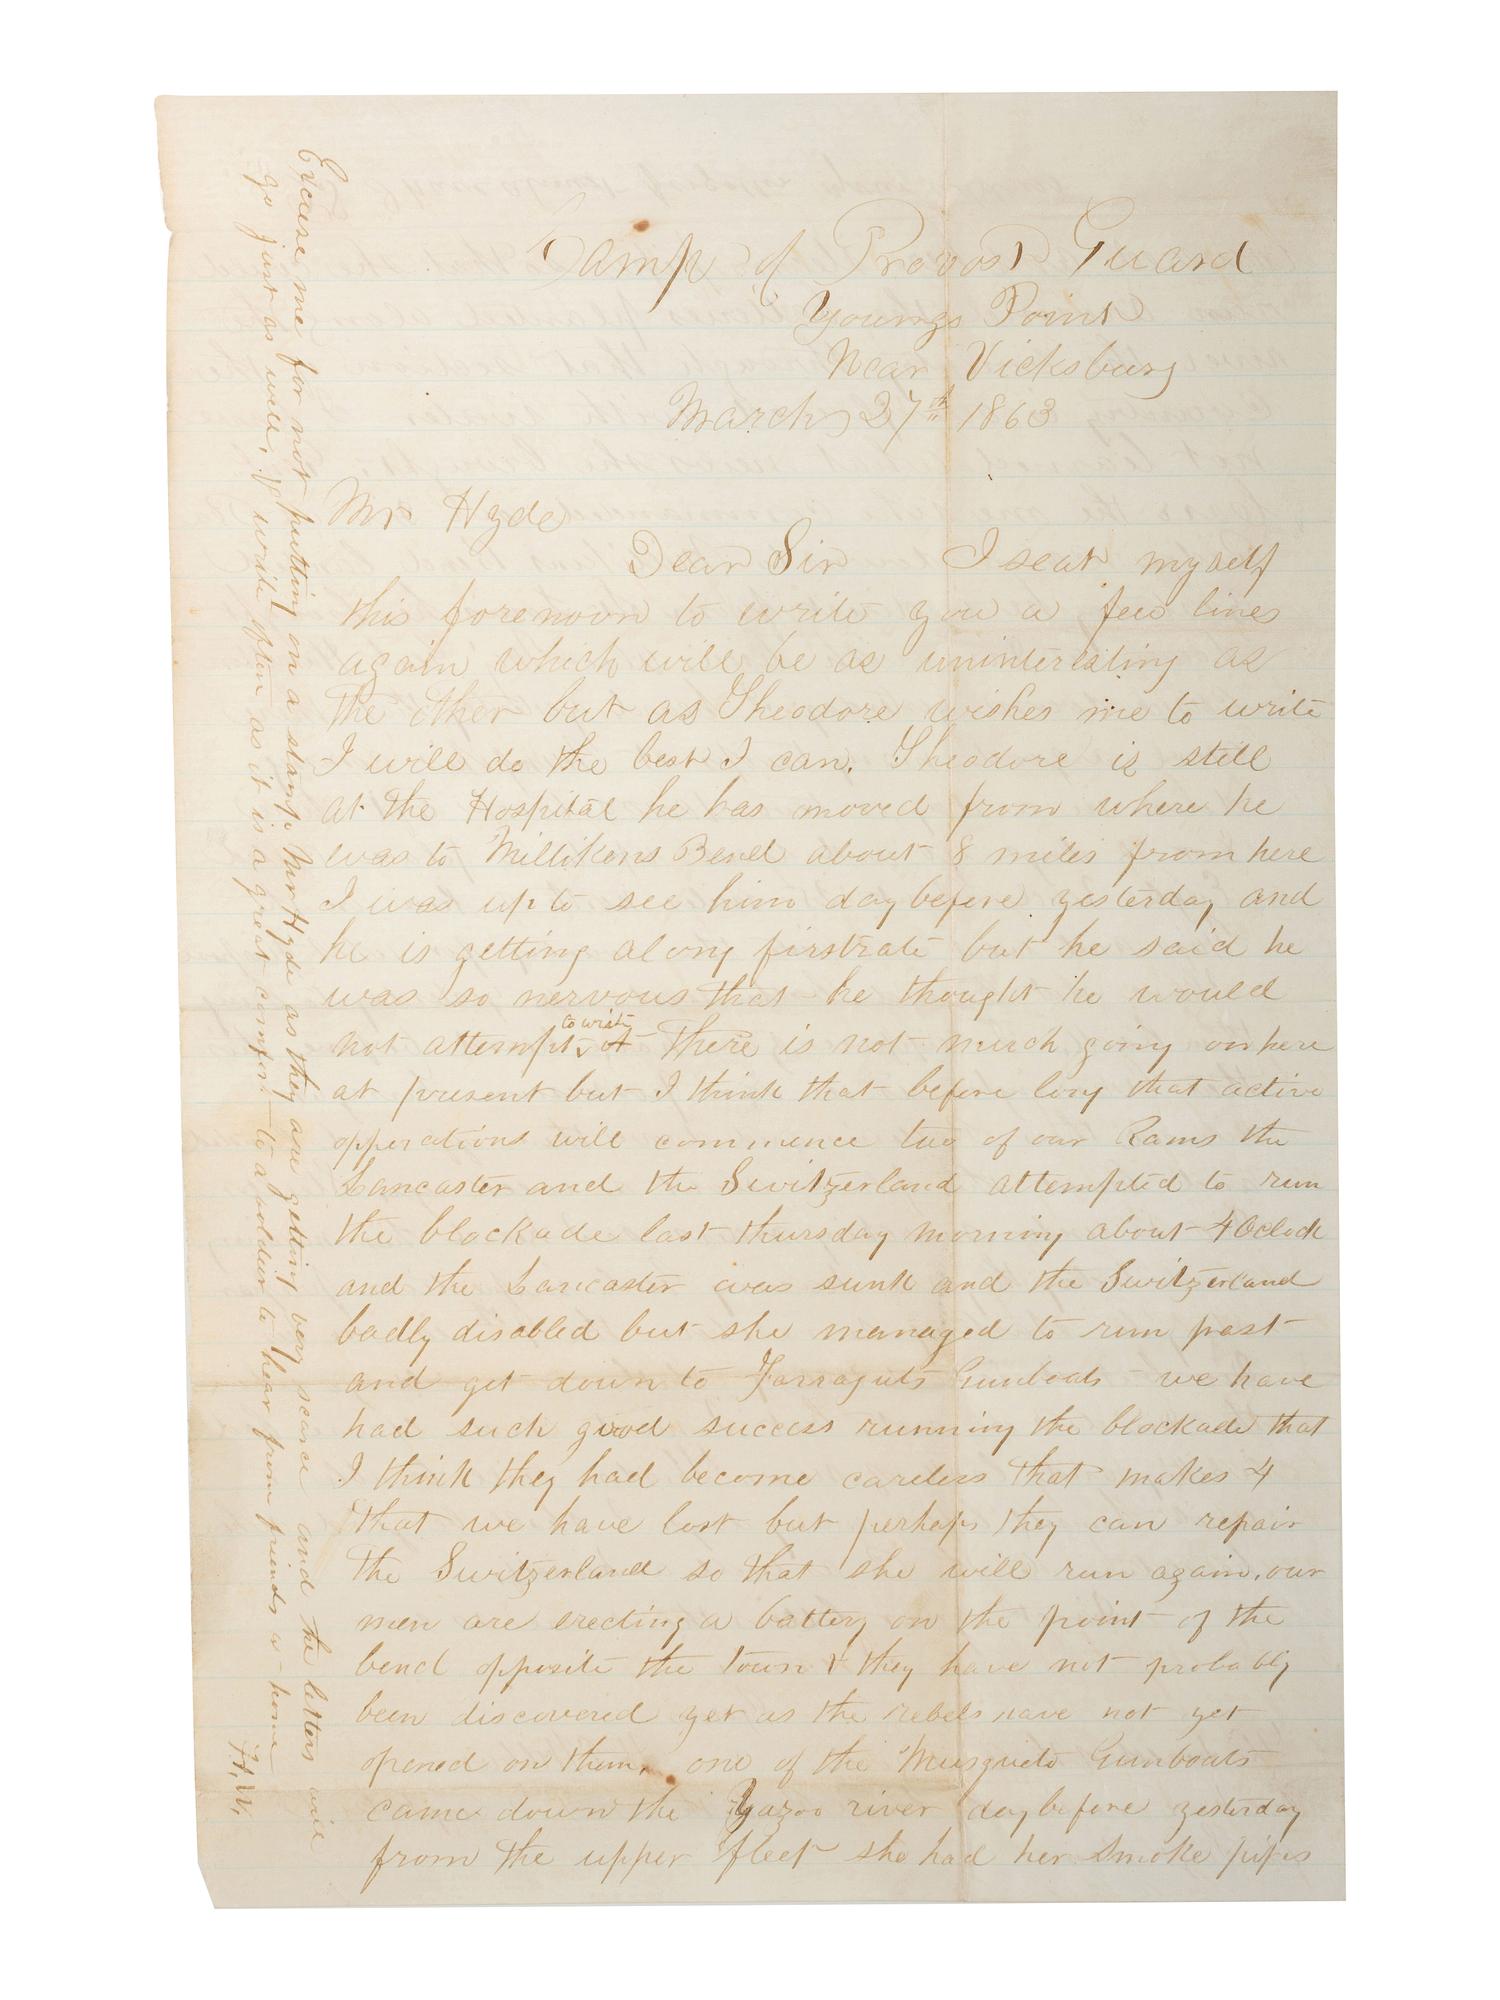 Camp of Provost Guard
Youngs Point
Near Vicksburg
March 27th 1863
Mr Hyde
Dear Sir I seat myself
this forenoon to write you a few lines
again which will be as uninteresting as
the other but as Theodore wishes me to write
I will do the best I can. Theodore is still
at the Hospital he has moved from where he
was to Millikens Bend about 8 miles from here
I was up to see him day before yesterday and
he is getting along firstrate but he said he
was so nervous that he thought he would
not attempt to write it There is not much going on here
at present but I think that before long that active
opperations will commence two of our Rams the
Lancaster and the Switzerland attempted to run
the blockade last thursday morning about 4 Oclock
and the Lancaster was sunk and the Switzerland
badly disabled but she managed to run past
and get down to Farraguts Gunboats we have
had such good success running the blockade that
I think they had become careless that makes 4
that we have lost but perhaps they can repair
the Switzerland so that she will run again. our
men are erecting a battery on the point of the
bend opposite the town & they have not probably
been discovered yet as the rebels have not yet
opened on them. one of the Musqueto Gunboats
came down the Yazoo river day before yesterday
from the upper fleet she had her smoke pipes
Excuse me for not putting on a stamp Mr Hyde as they are getting very scarce and the letters will
go just as well, write often as it is a great comfort to a soldier to hear from friends at home
H. W.